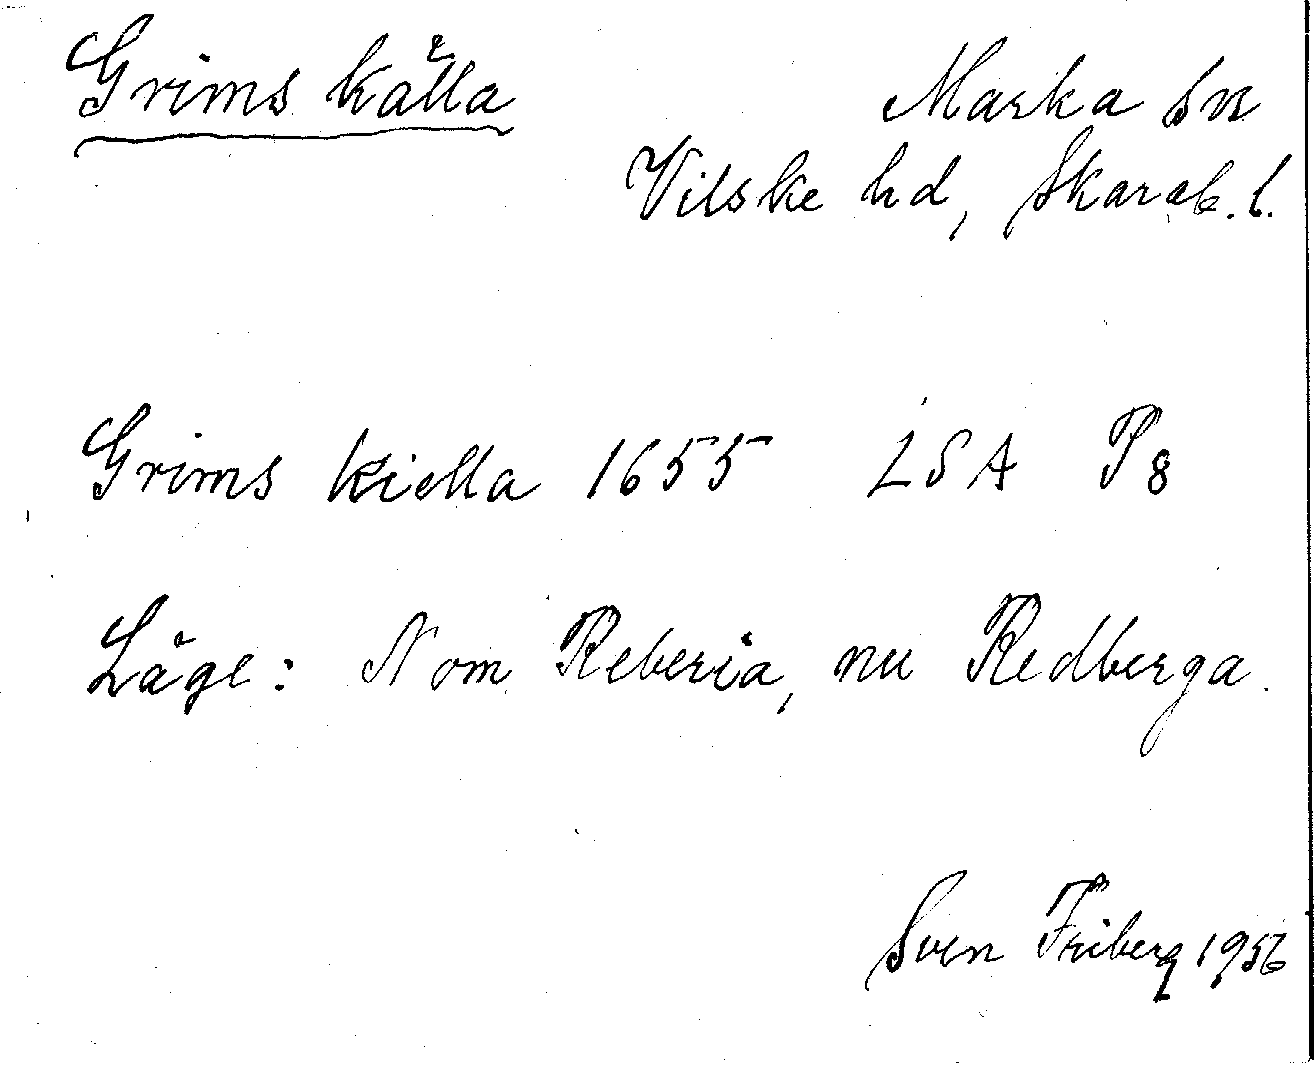 Grims källa
Marka sn
Vilske hd, Skarab. l.
Grims kiella 1655 LSA P8
Läge: N om Reberia, nu Redberga.
Sven Friberg 1956